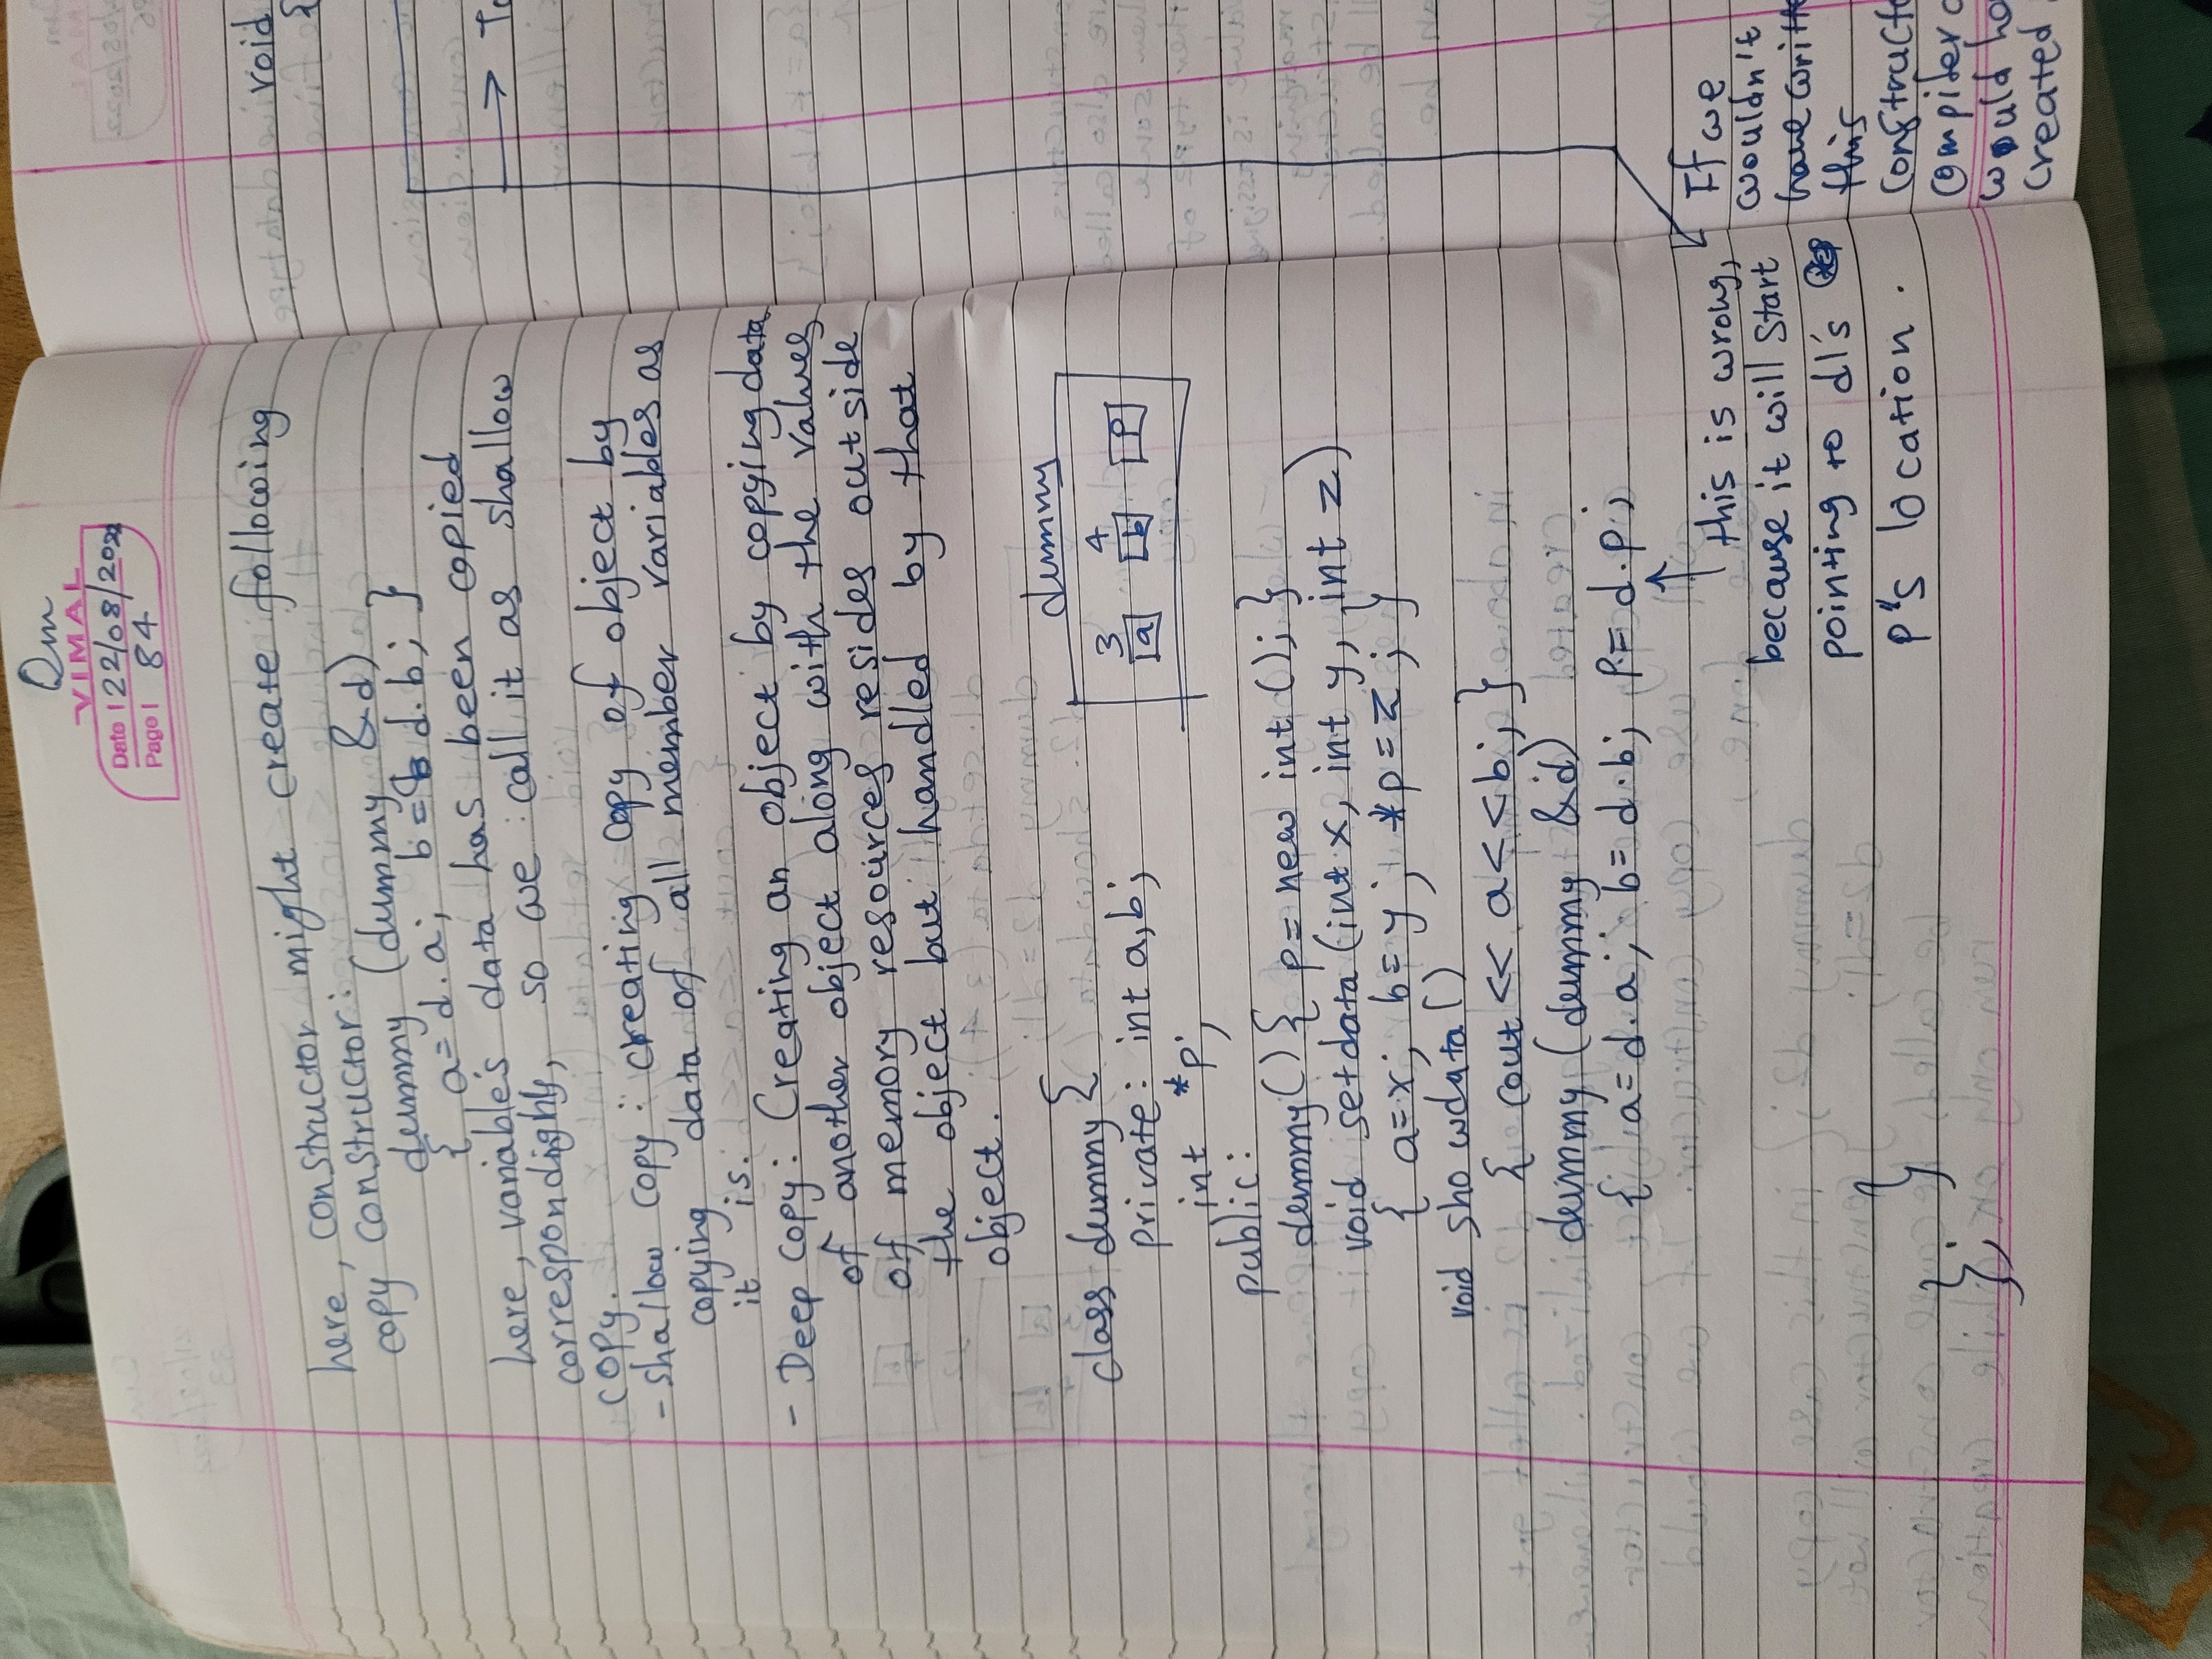 Om
VIMAL
Date 22/08/2022
Page 84
here, constructor might create following
copy constructor:
dummy (dummy &d)
{ a=d.a; b= d.b; }
here, variable's data has been copied
correspondighly, so we call it as shallow
copy.
- Shallow copy: creating copy of object by
copying data of all member variables as
it is.
- Deep copy: Creating an object by copying data
of another object along with the values
of memory resources resides outside
the object but handled by that
object.
class dummy {
private: int a,b;
int *p;
public:
dummy() { p= new int (); }
void setdata (int x, int y, int z)
{ a=x; b=y; *p=z; }
void showdata()
{ cout << a<<b; }
dummy (dummy &d)
{ a=d.a; b=d.b; p=d.p;
}
};
dummy
3 4
a b p
this is wrong,
because it will start
pointing to d1's
p's location.
void
{
If we
wouldn't
have
this
compiler
would
created